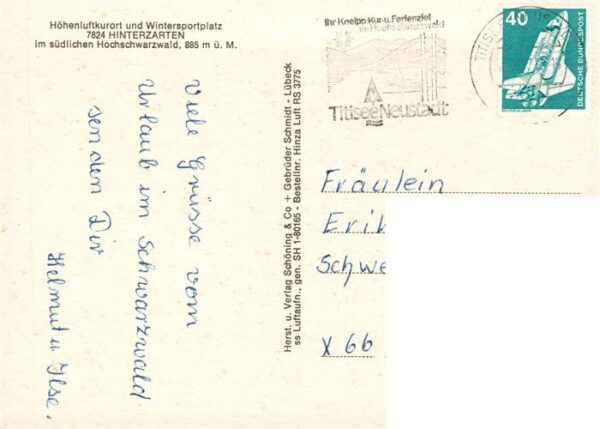 Höhenluftkurort und Wintersportplatz
7824 HINTERZARTEN
im südlichen Hochschwarzwald, 885 m ü. M.
Viele Grüsse vom
Urlaub im Schwarzwald
senden Dir
Helmut u. Ilse.
Herst. u. Verlag Schöning & Co + Gebrüder Schmidt - Lübeck
ss Luftaufn., gen. SH 1-80165 - Bestellnr. Hinza Luft RS 3775
Ihr Kneipp-Kur- u. Ferienziel
im Hochschwarzwald
Titisee Neustadt
TITISEE
40
DEUTSCHE BUNDESPOST
Fräulein
Eri
Schwe
X 66